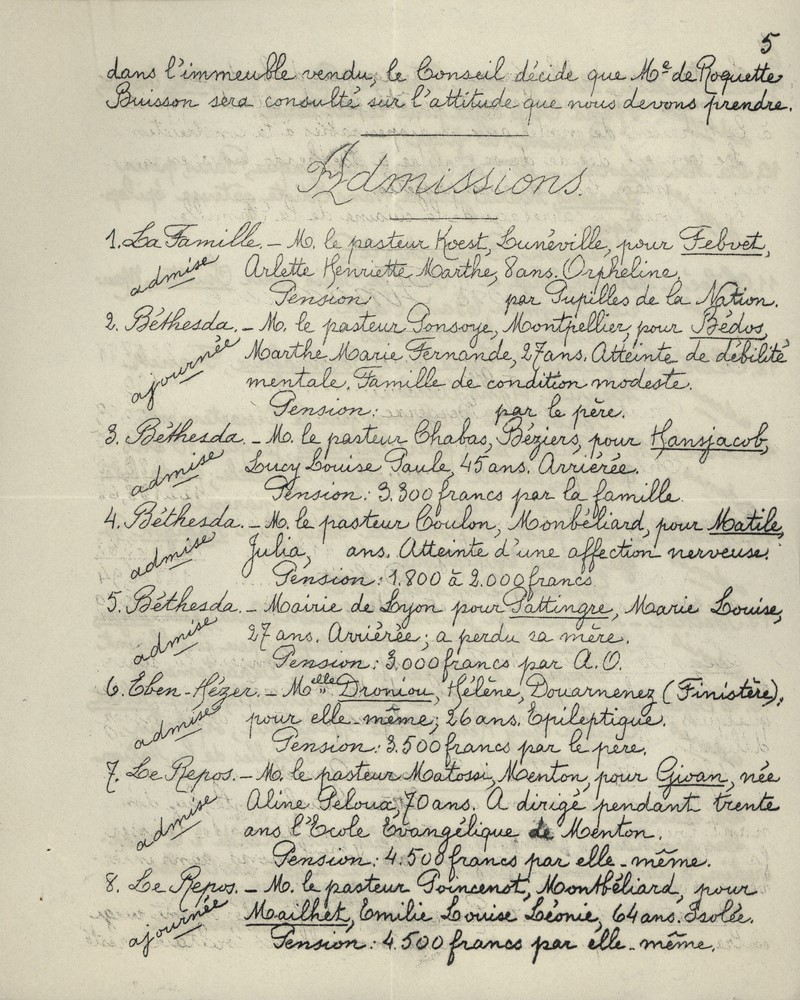 5
dans l'immeuble vendu, le Conseil décide que Mᵉ de Roquette
Buisson sera consulté sur l'attitude que nous devons prendre.
Admissions.
1. La Famille. – M. le pasteur Koest, Lunéville, pour Febvet,
admise
Arlette Henriette Marthe, 8 ans. Orpheline.
Pension par Pupilles de la Nation.
2. Béthesda. – M. le pasteur Ponsoye, Montpellier, pour Bédos,
ajournée
Marthe Marie Fernande, 27 ans. Atteinte de débilité
mentale. Famille de condition modeste.
Pension: par le père.
3. Béthesda. – M. le pasteur Chabas, Béziers, pour Hansjacob,
admise
Lucy Louise Paule, 45 ans. Arriérée.
Pension: 3.300 francs par la famille.
4. Béthesda. – M. le pasteur Coulon, Monbéliard, pour Matile,
admise
Julia, ans. Atteinte d'une affection nerveuse.
Pension: 1.800 à 2.000 francs
5. Béthesda. – Mairie de Lyon pour Pattingre, Marie Louise,
admise
27 ans. Arriérée; a perdu sa mère.
Pension: 3.000 francs par A.O.
6. Eben-Hézer. – Mᵉˡˡᵉ Droniou, Hélène, Douarnenez (Finistère),
admise
pour elle-même; 26 ans. Epileptique.
Pension: 3.500 francs par le père.
7. Le Repos. – M. le pasteur Matossi, Menton, pour Givan, née
admise
Aline Peloux, 70 ans. A dirigé pendant trente
ans l'Ecole Evangélique de Menton.
Pension: 4.500 francs par elle-même.
8. Le Repos. – M. le pasteur Poincenot, Montbéliard, pour
ajournée
Mailhet, Emilie Louise Léonie, 64 ans. Isolée.
Pension: 4.500 francs par elle-même.